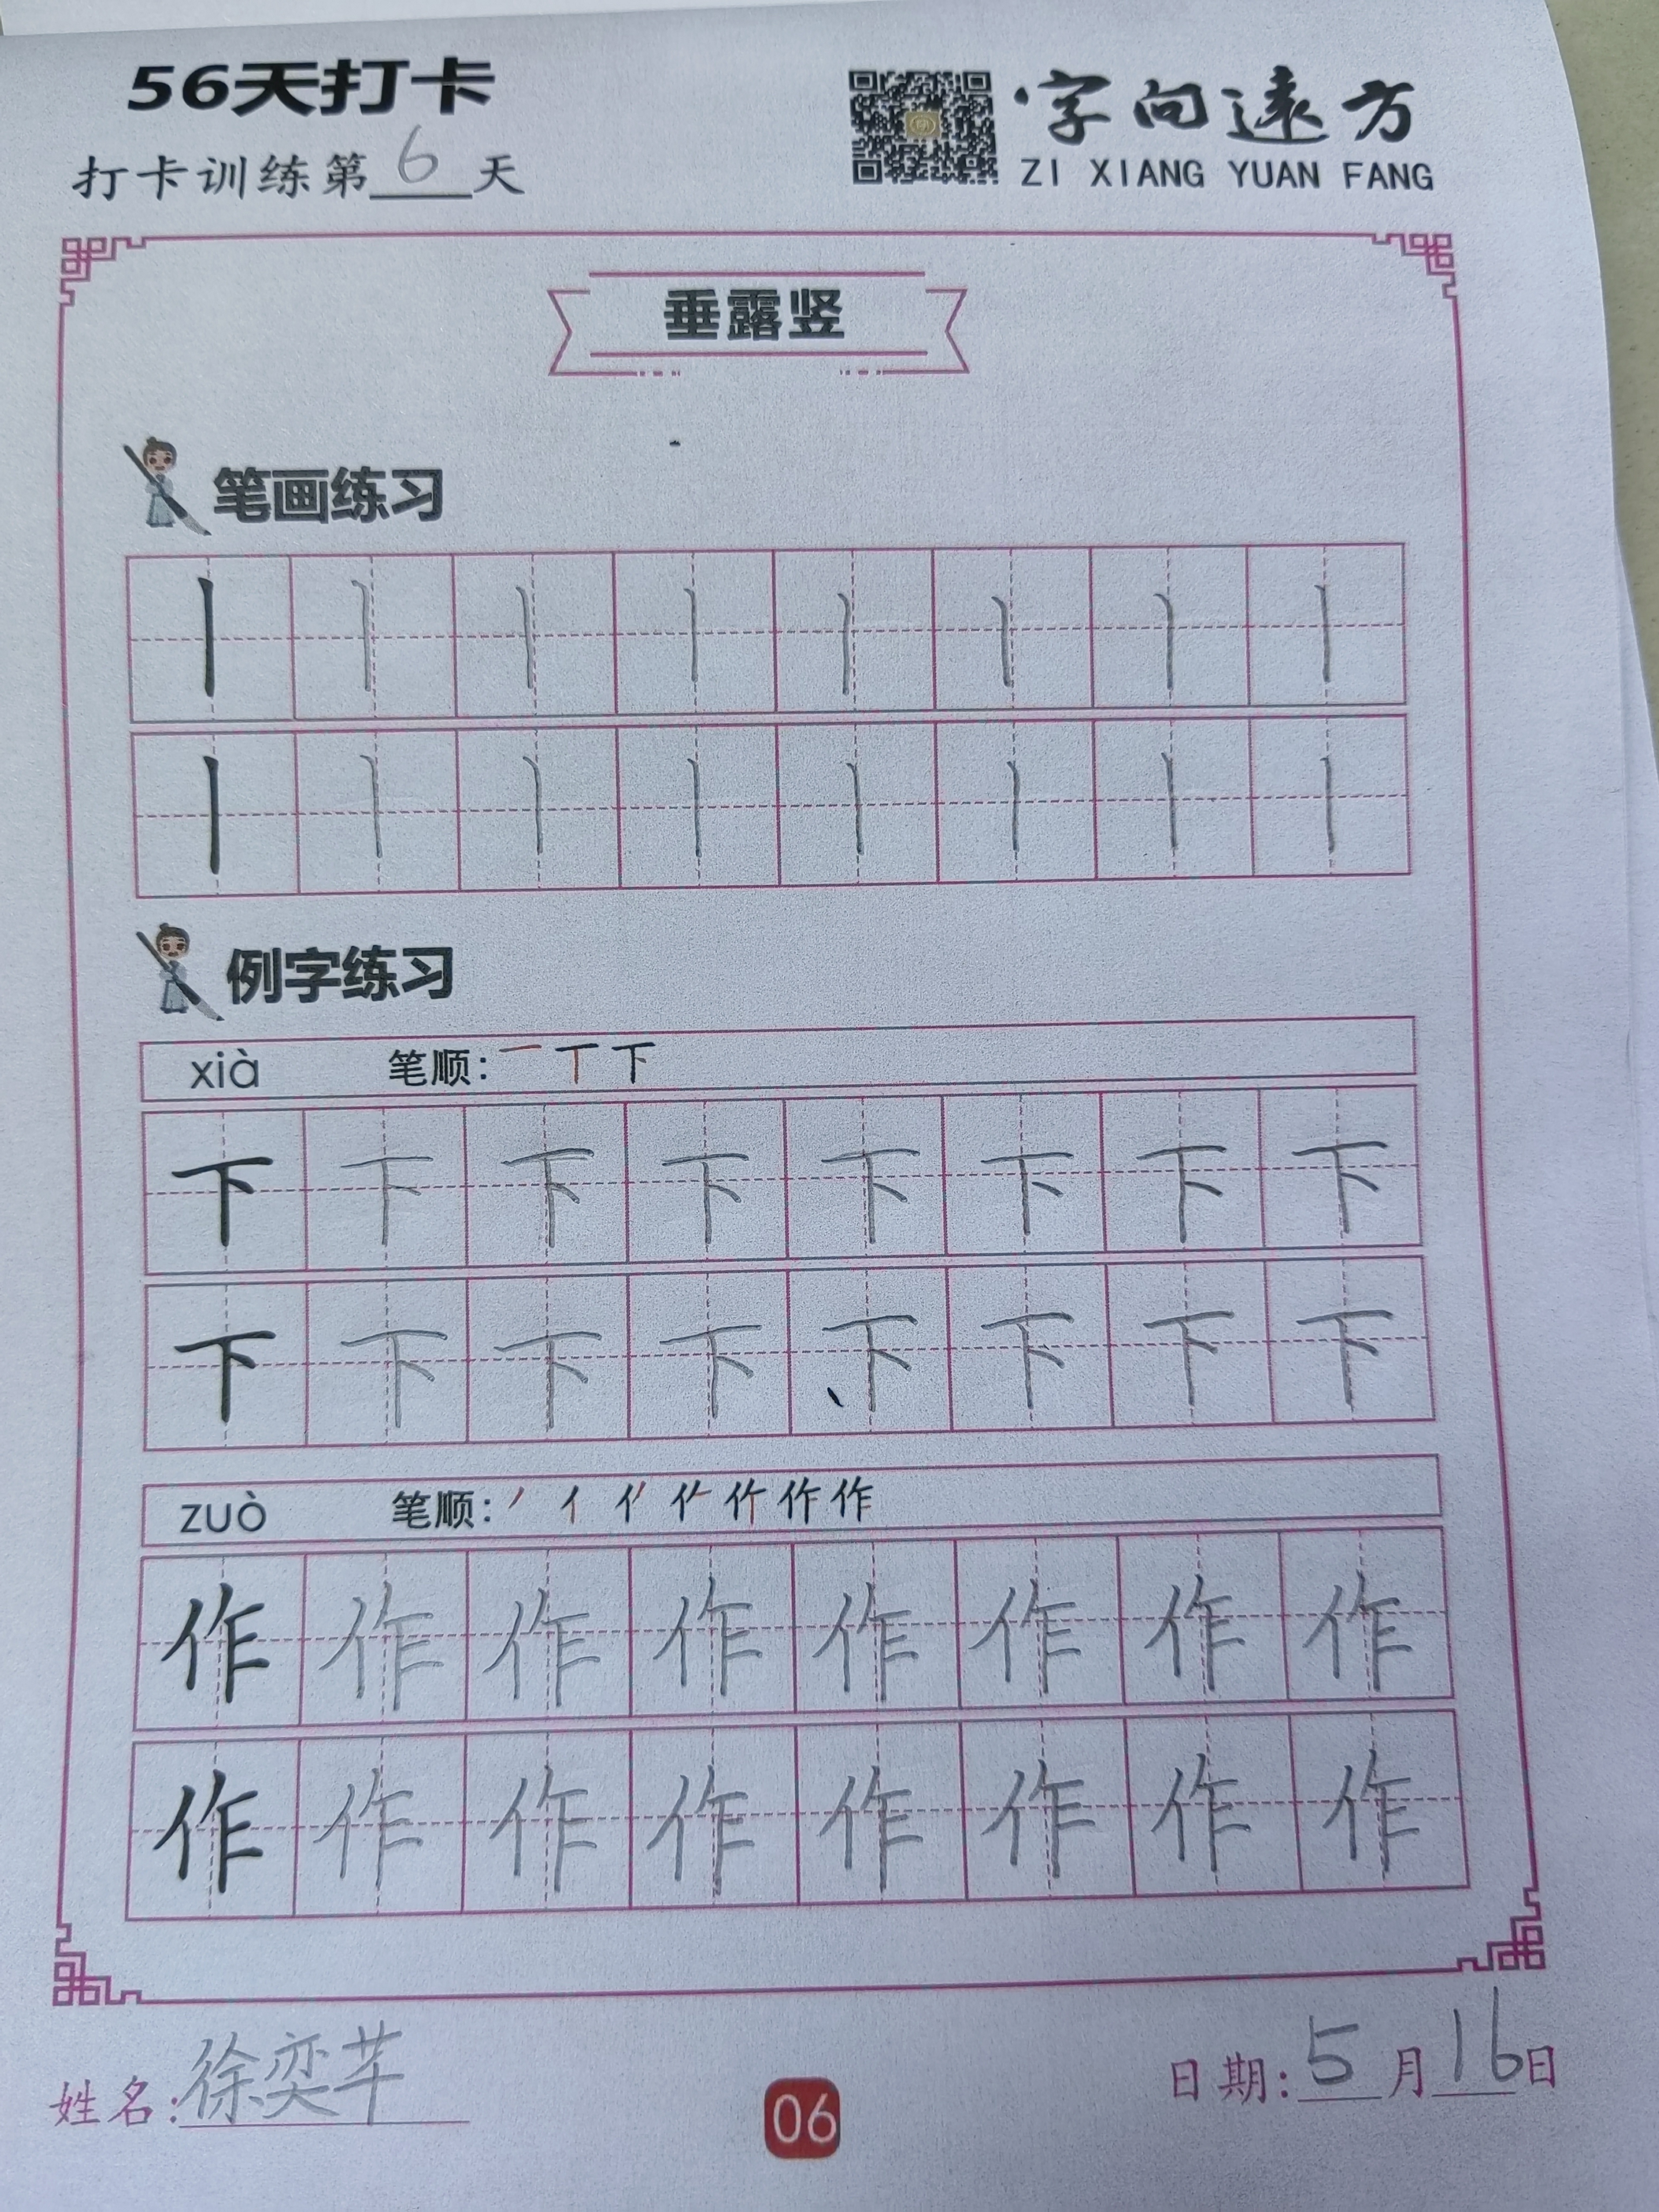 56天打卡
打卡训练第6天
字向远方
ZI XIANG YUAN FANG
垂露竖
笔画练习
丨丨丨丨丨丨丨丨
丨丨丨丨丨丨丨丨
例字练习
xià 笔顺: 一丅下
下下下下下下下下
下下下下下下下下
zuò 笔顺: 丿亻作作
作作作作作作作作
作作作作作作作作
姓名:徐奕芊
日期:5月16日
06